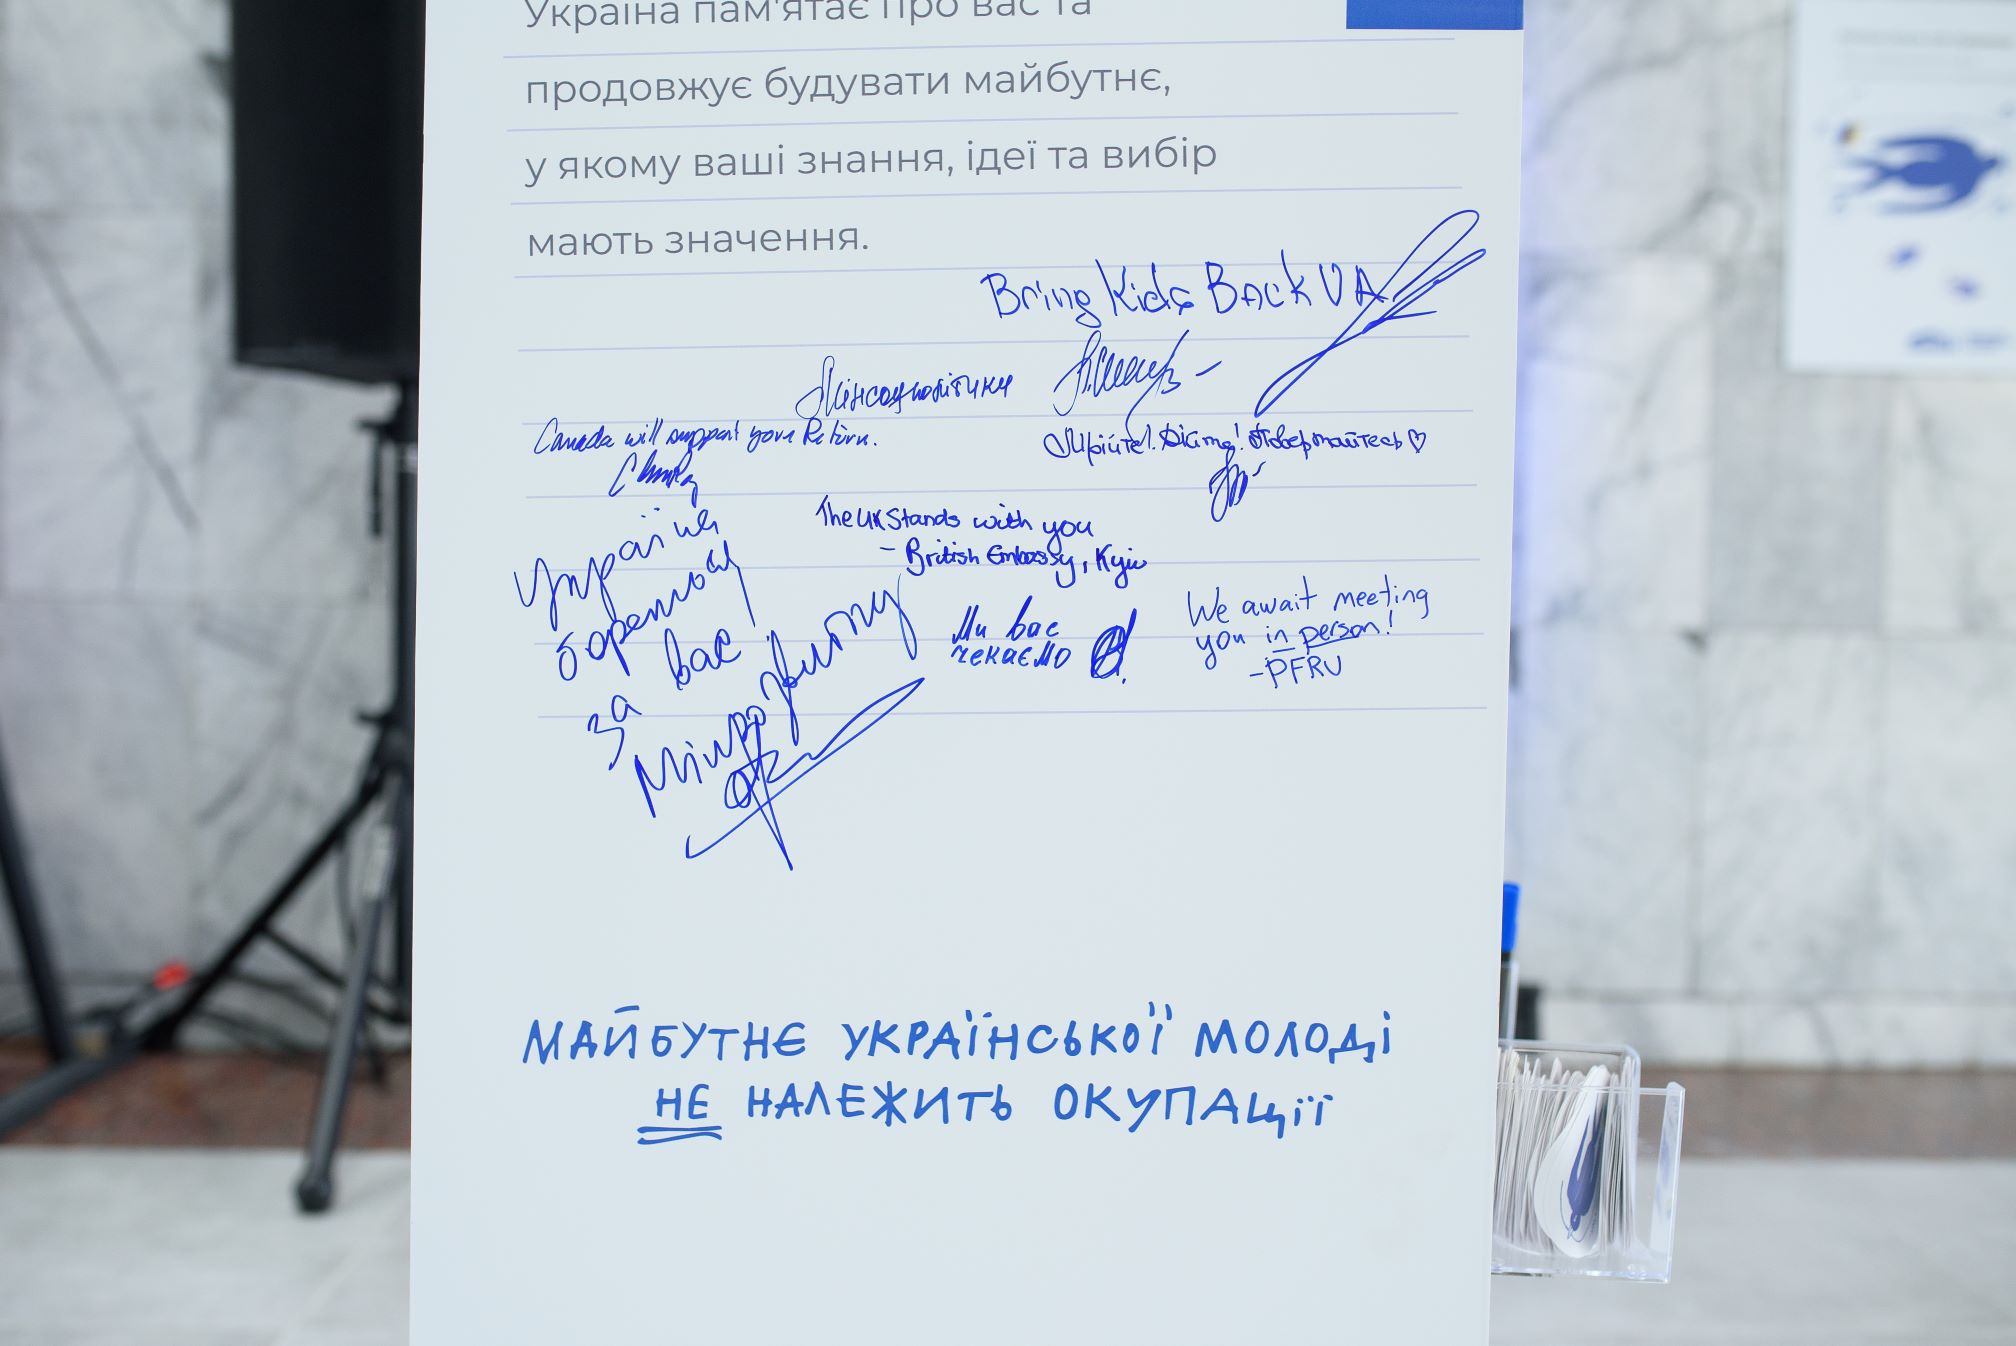 Україна пам'ятає про вас та
продовжує будувати майбутнє,
у якому ваші знання, ідеї та вибір
мають значення.
Bring Kids Back UA
Мінсоцполітики
Canada will support your Return.
Мрійте! Дійте! Повертайтесь ♡
The UK Stands with you
– British Embassy, Kyiv
Україна
бореться
за вас
Мінрозвитку
Ми вас
чекаємо
We await meeting
you in person!
–PFRU
МАЙБУТНЄ УКРАЇНСЬКОЇ МОЛОДІ
НЕ НАЛЕЖИТЬ ОКУПАЦІЇ